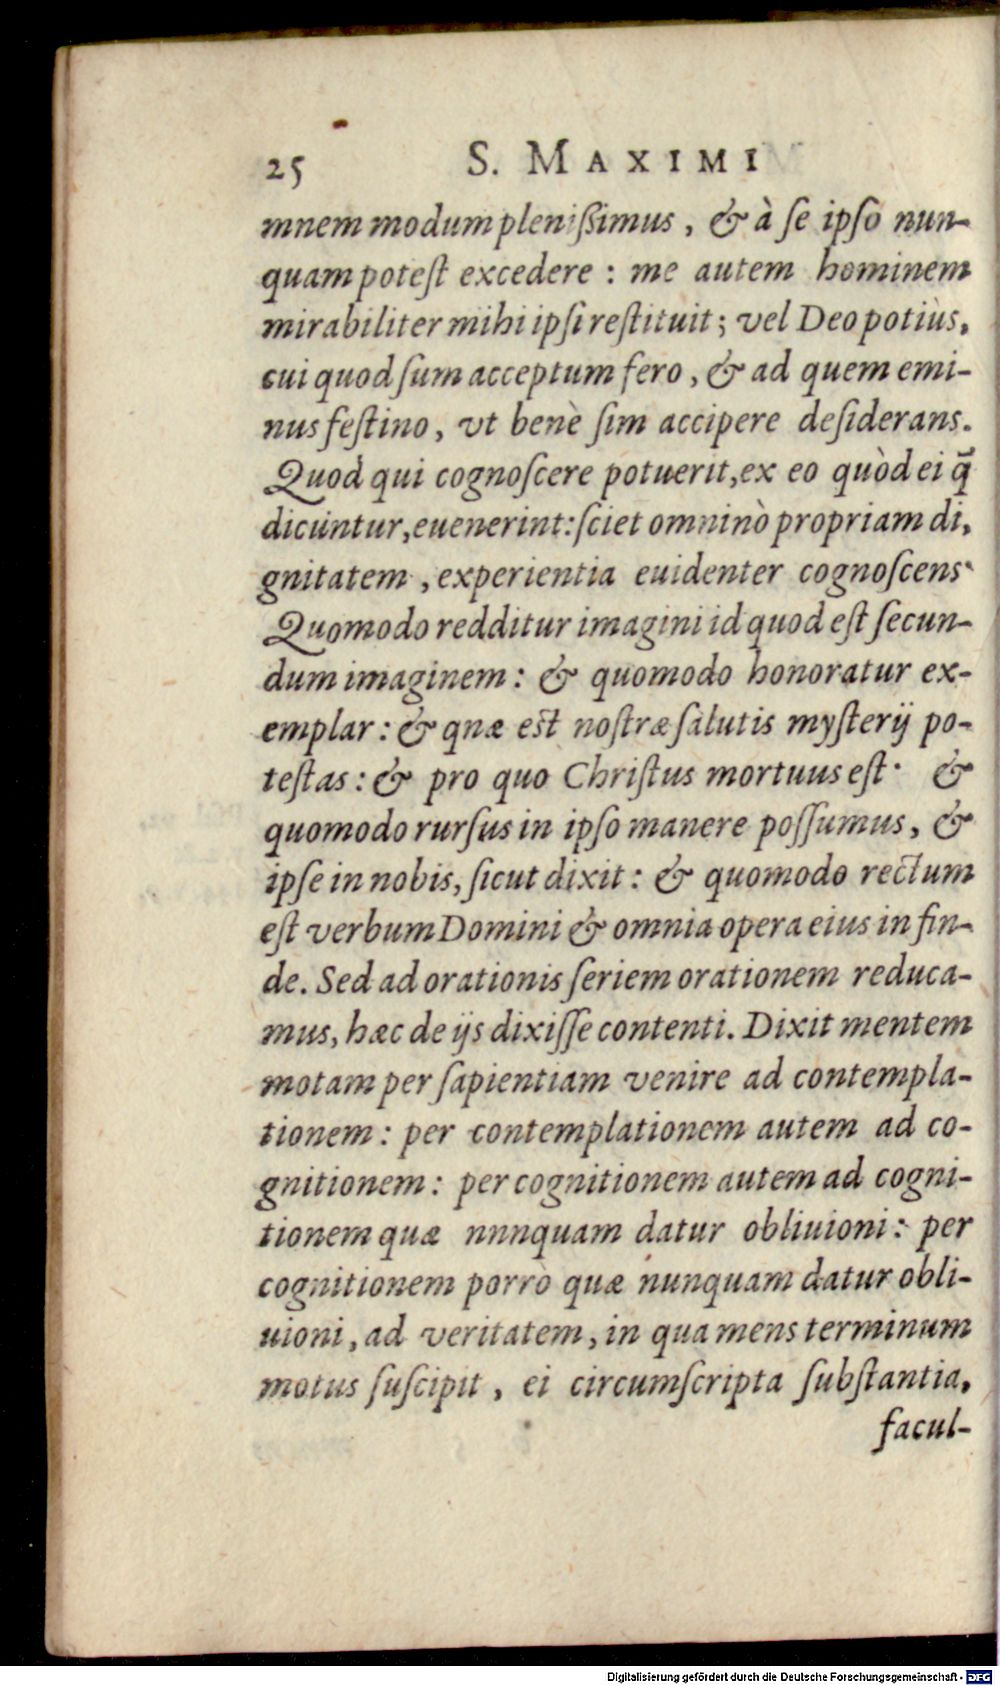 25 S. MAXIMI
mnem modum pleniſſimus, & à ſe ipſo nun-
quam poteſt excedere : me autem hominem
mirabiliter mihi ipſi reſtituit; vel Deo potiùs,
cui quod ſum acceptum fero, & ad quem emi-
nus feſtino, vt benè ſim accipere deſiderans.
Quod qui cognoſcere potuerit, ex eo quòd ei q̃
dicuntur, euenerint: ſciet omninò propriam di,
gnitatem, experientia euidenter cognoſcens·
Quomodo redditur imagini id quod eſt ſecun-
dum imaginem : & quomodo honoratur ex-
emplar : & qnæ eſt noſtræ ſalutis myſterij po-
teſtas : & pro quo Chriſtus mortuus eſt· &
quomodo rurſus in ipſo manere poſſumus, &
ipſe in nobis, ſicut dixit : & quomodo rectum
eſt verbum Domini & omnia opera eius in fin-
de. Sed ad orationis ſeriem orationem reduca-
mus, hæc de ijs dixiſſe contenti. Dixit mentem
motam per ſapientiam venire ad contempla-
tionem : per contemplationem autem ad co-
gnitionem : per cognitionem autem ad cogni-
tionem quæ nnnquam datur obliuioni : per
cognitionem porrò quæ nunquam datur obli-
uioni, ad veritatem, in qua mens terminum
motus ſuſcipit, ei circumſcripta ſubſtantia,
facul-
Digitalisierung gefördert durch die Deutsche Forschungsgemeinschaft - DFG